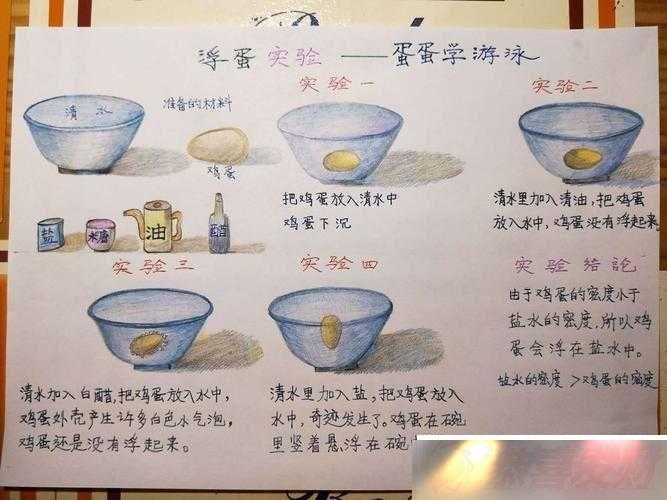 浮蛋实验——蛋蛋学游泳
清水
准备的材料
鸡蛋
盐
糖
油
醋
实验一
把鸡蛋放入清水中
鸡蛋下沉
实验二
清水里加入清油，把鸡蛋
放入水中，鸡蛋没有浮起来
实验三
清水加入白醋，把鸡蛋放入水中，
鸡蛋外壳产生许多白色小气泡，
鸡蛋还是没有浮起来。
实验四
清水里加入盐，把鸡蛋放入
水中，奇迹发生了。鸡蛋在碗
里竖着悬浮在碗
实验结论
由于鸡蛋的密度小于
盐水的密度，所以鸡
蛋会浮在盐水中。
盐水的密度＞鸡蛋的密度